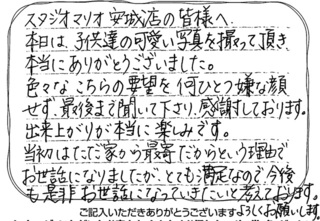 スタジオマリオ安城店の皆様へ
本日は、子供達の可愛い写真を撮って頂き
本当にありがとうございました。
色々なこちらの要望を何ひとつ嫌な顔
せず、最後まで聞いて下さり、感謝しております。
出来上がりが本当に楽しみです。
当初はただ家から最寄だからという理由で
お世話になりましたが、とても満足なので、今後
も是非お世話になっていきたいと考えております。
よろしくお願いします。
ご記入いただきありがとうございます。